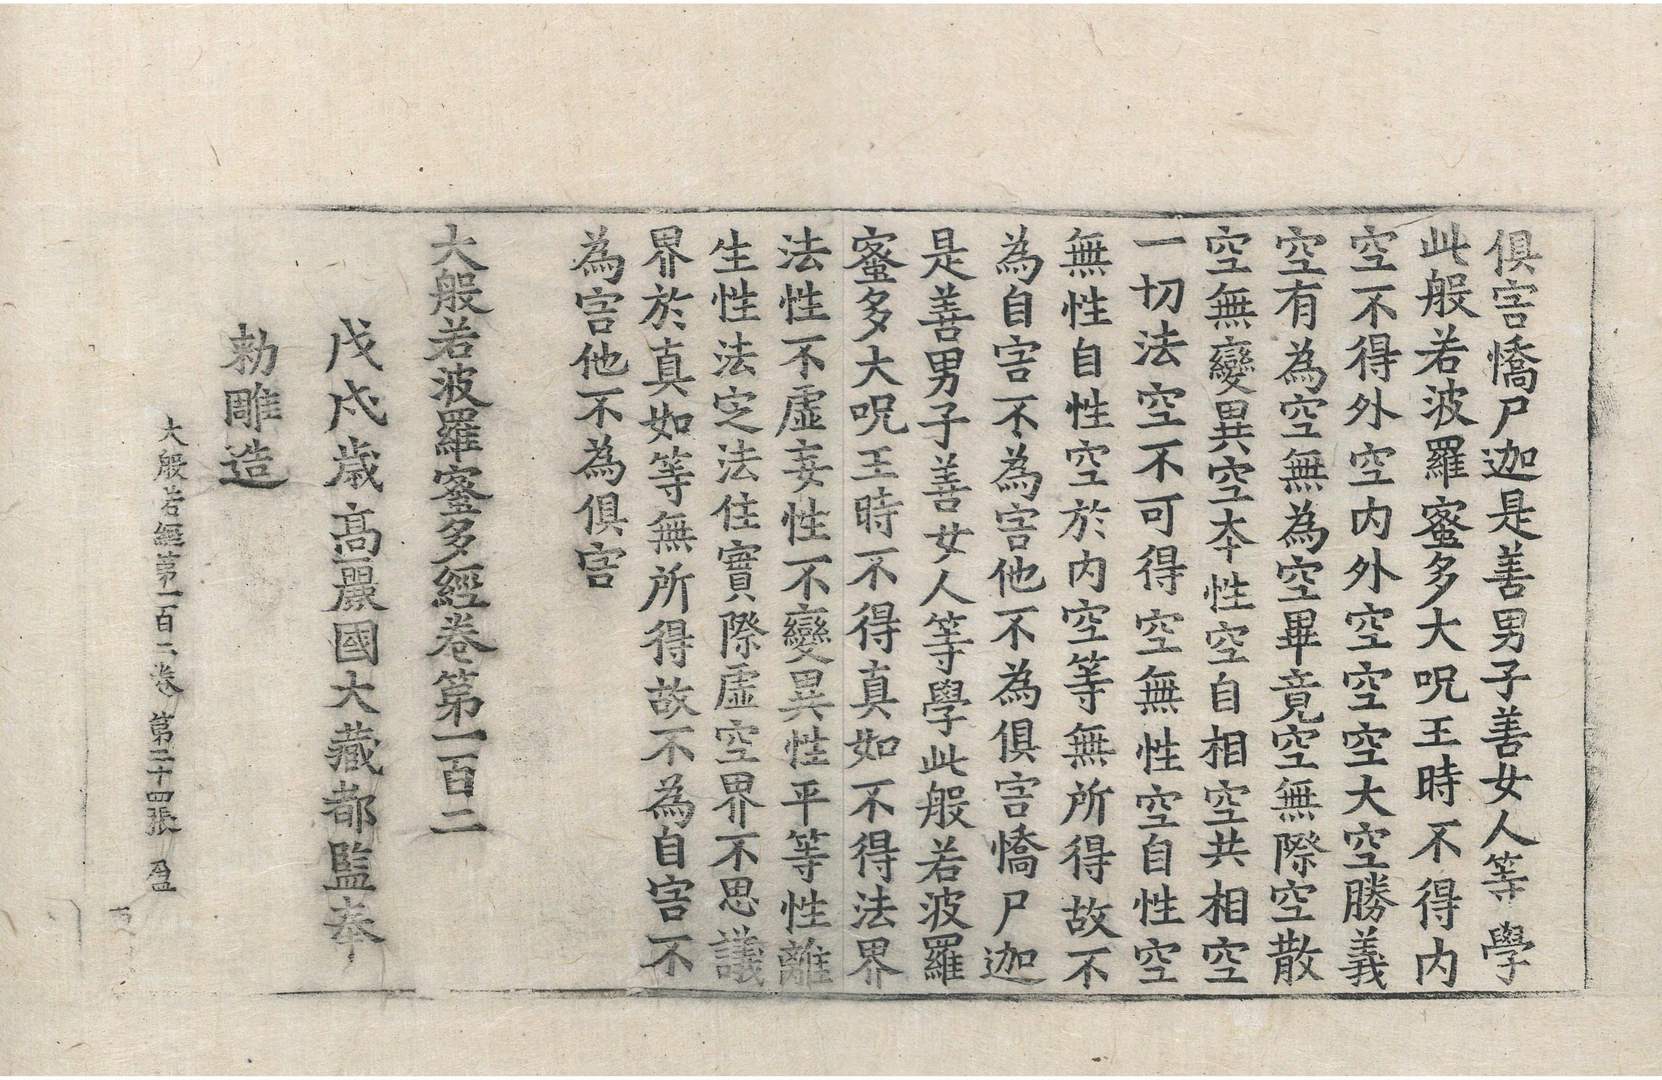 俱害憍尸迦是善男子善女人等學
此般若波羅蜜多大呪王時不得內
空不得外空內外空空空大空勝義
空有為空無為空畢竟空無際空散
空無變異空本性空自相空共相空
一切法空不可得空無性空自性空
無性自性空於內空等無所得故不
為自害不為害他不為俱害憍尸迦
是善男子善女人等學此般若波羅
蜜多大呪王時不得真如不得法界
法性不虛妄性不變異性平等性離
生性法定法住實際虛空界不思議
界於真如等無所得故不為自害不
為害他不為俱害
大般若波羅蜜多經卷第一百二
戊戌歲高麗國大藏都監奉
勅雕造
大般若經第一百二卷 第二十四張 盈